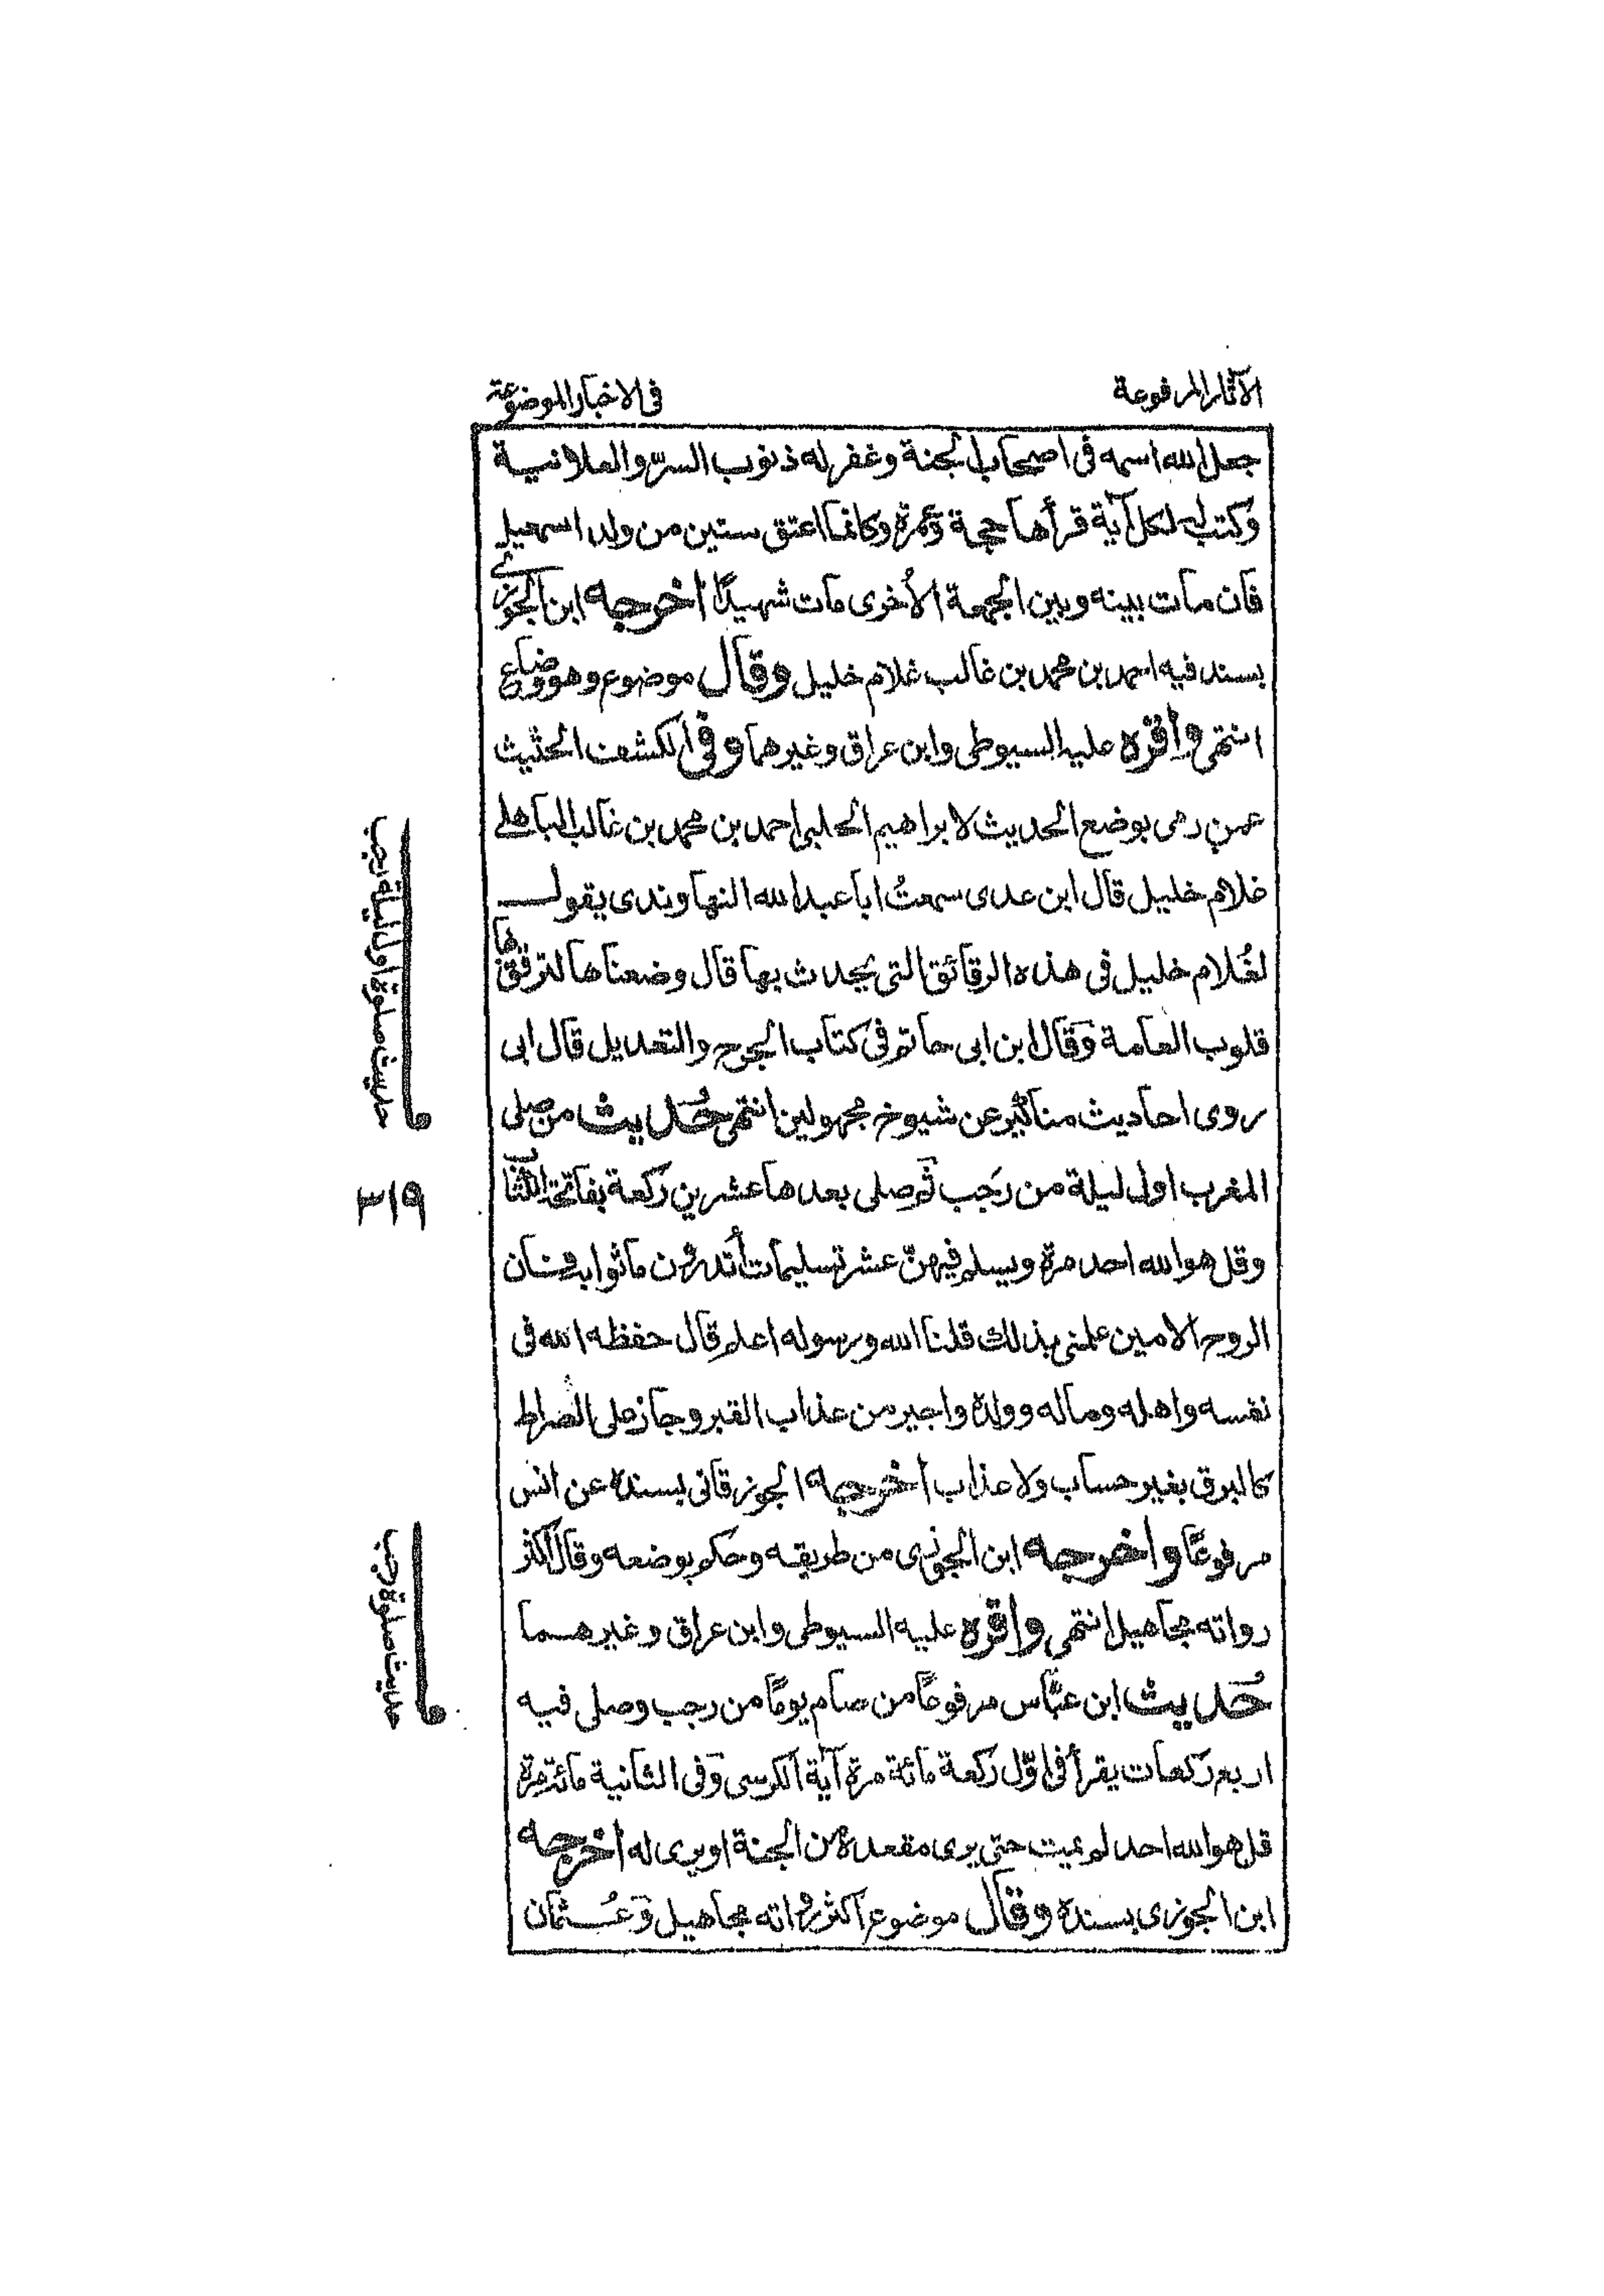 الآثار المرفوعة
فی الاخبار الموضوعة
جعل الله اسمه فی اصحاب الجنة وغفر له ذنوب السرّ والعلانیة
وکتب له لکل آیة قرأها حجة وعمرة وکانما اعتق ستین من ولد اسمعیل
فان مات بینه وبین الجمعة الأخری مات شهیدًا اخرجه ابن الجوزے
بسند فیه احمد بن محمد بن غالب غلام خلیل وقال موضوع وهو وضاع
انتهی واقره علیه السیوطی وابن عراق وغیرهما وفی الکشف الحثیث
عمن رمی بوضع الحدیث لابراهیم الحلبی احمد بن محمد بن غالب الباهلے
غلام خلیل قال ابن عدی سمعتُ ابا عبد الله النهاوندی یقول
لغُلام خلیل فی هذه الرقائق التی یحدث بها قال وضعناها لترقق بها
قلوب العامة وقال ابن ابی حاتم فی کتاب الجرح والتعدیل قال ابی
روی احادیث مناکیر عن شیوخ مجهولین انتهی حَدیث من صلی
المغرب اول لیلة من رجب ثم صلی بعدها عشرین رکعة بفاتحة الکتاب
وقل هو الله احد مرة ویسلم فیهنّ عشر تسلیمات أتدرون ما ثوابه فان
الروح الامین علمنی بذلك قلنا الله ورسوله اعلم قال حفظه الله فی
نفسه واهله وماله وولده واجیر من عذاب القبر وجاز علی الصراط
کالبرق بغیر حساب ولا عذاب اخرجه الجوزقانی بسنده عن انس
مرفوعًا واخرجه ابن الجوزی من طریقه وحکم بوضعه وقال اکثر
رواته مجاهیل انتهی واقره علیه السیوطی وابن عراق وغیرهما
حَدیث ابن عبّاس مرفوعًا من صام یومًا من رجب وصلی فیه
اربع رکعات یقرأ فی اوّل رکعة مائة مرة آیة الکرسی وفی الثانیة مائة مرة
قل هو الله احد لم یمت حتی یری مقعده من الجنة او یری له اخرجه
ابن الجوزی بسنده وقال موضوع اکثر رواته مجاهیل وعُثمان
حدیث صلوة اول لیلة رجب
٣١٩
حدیث صلوة رجب